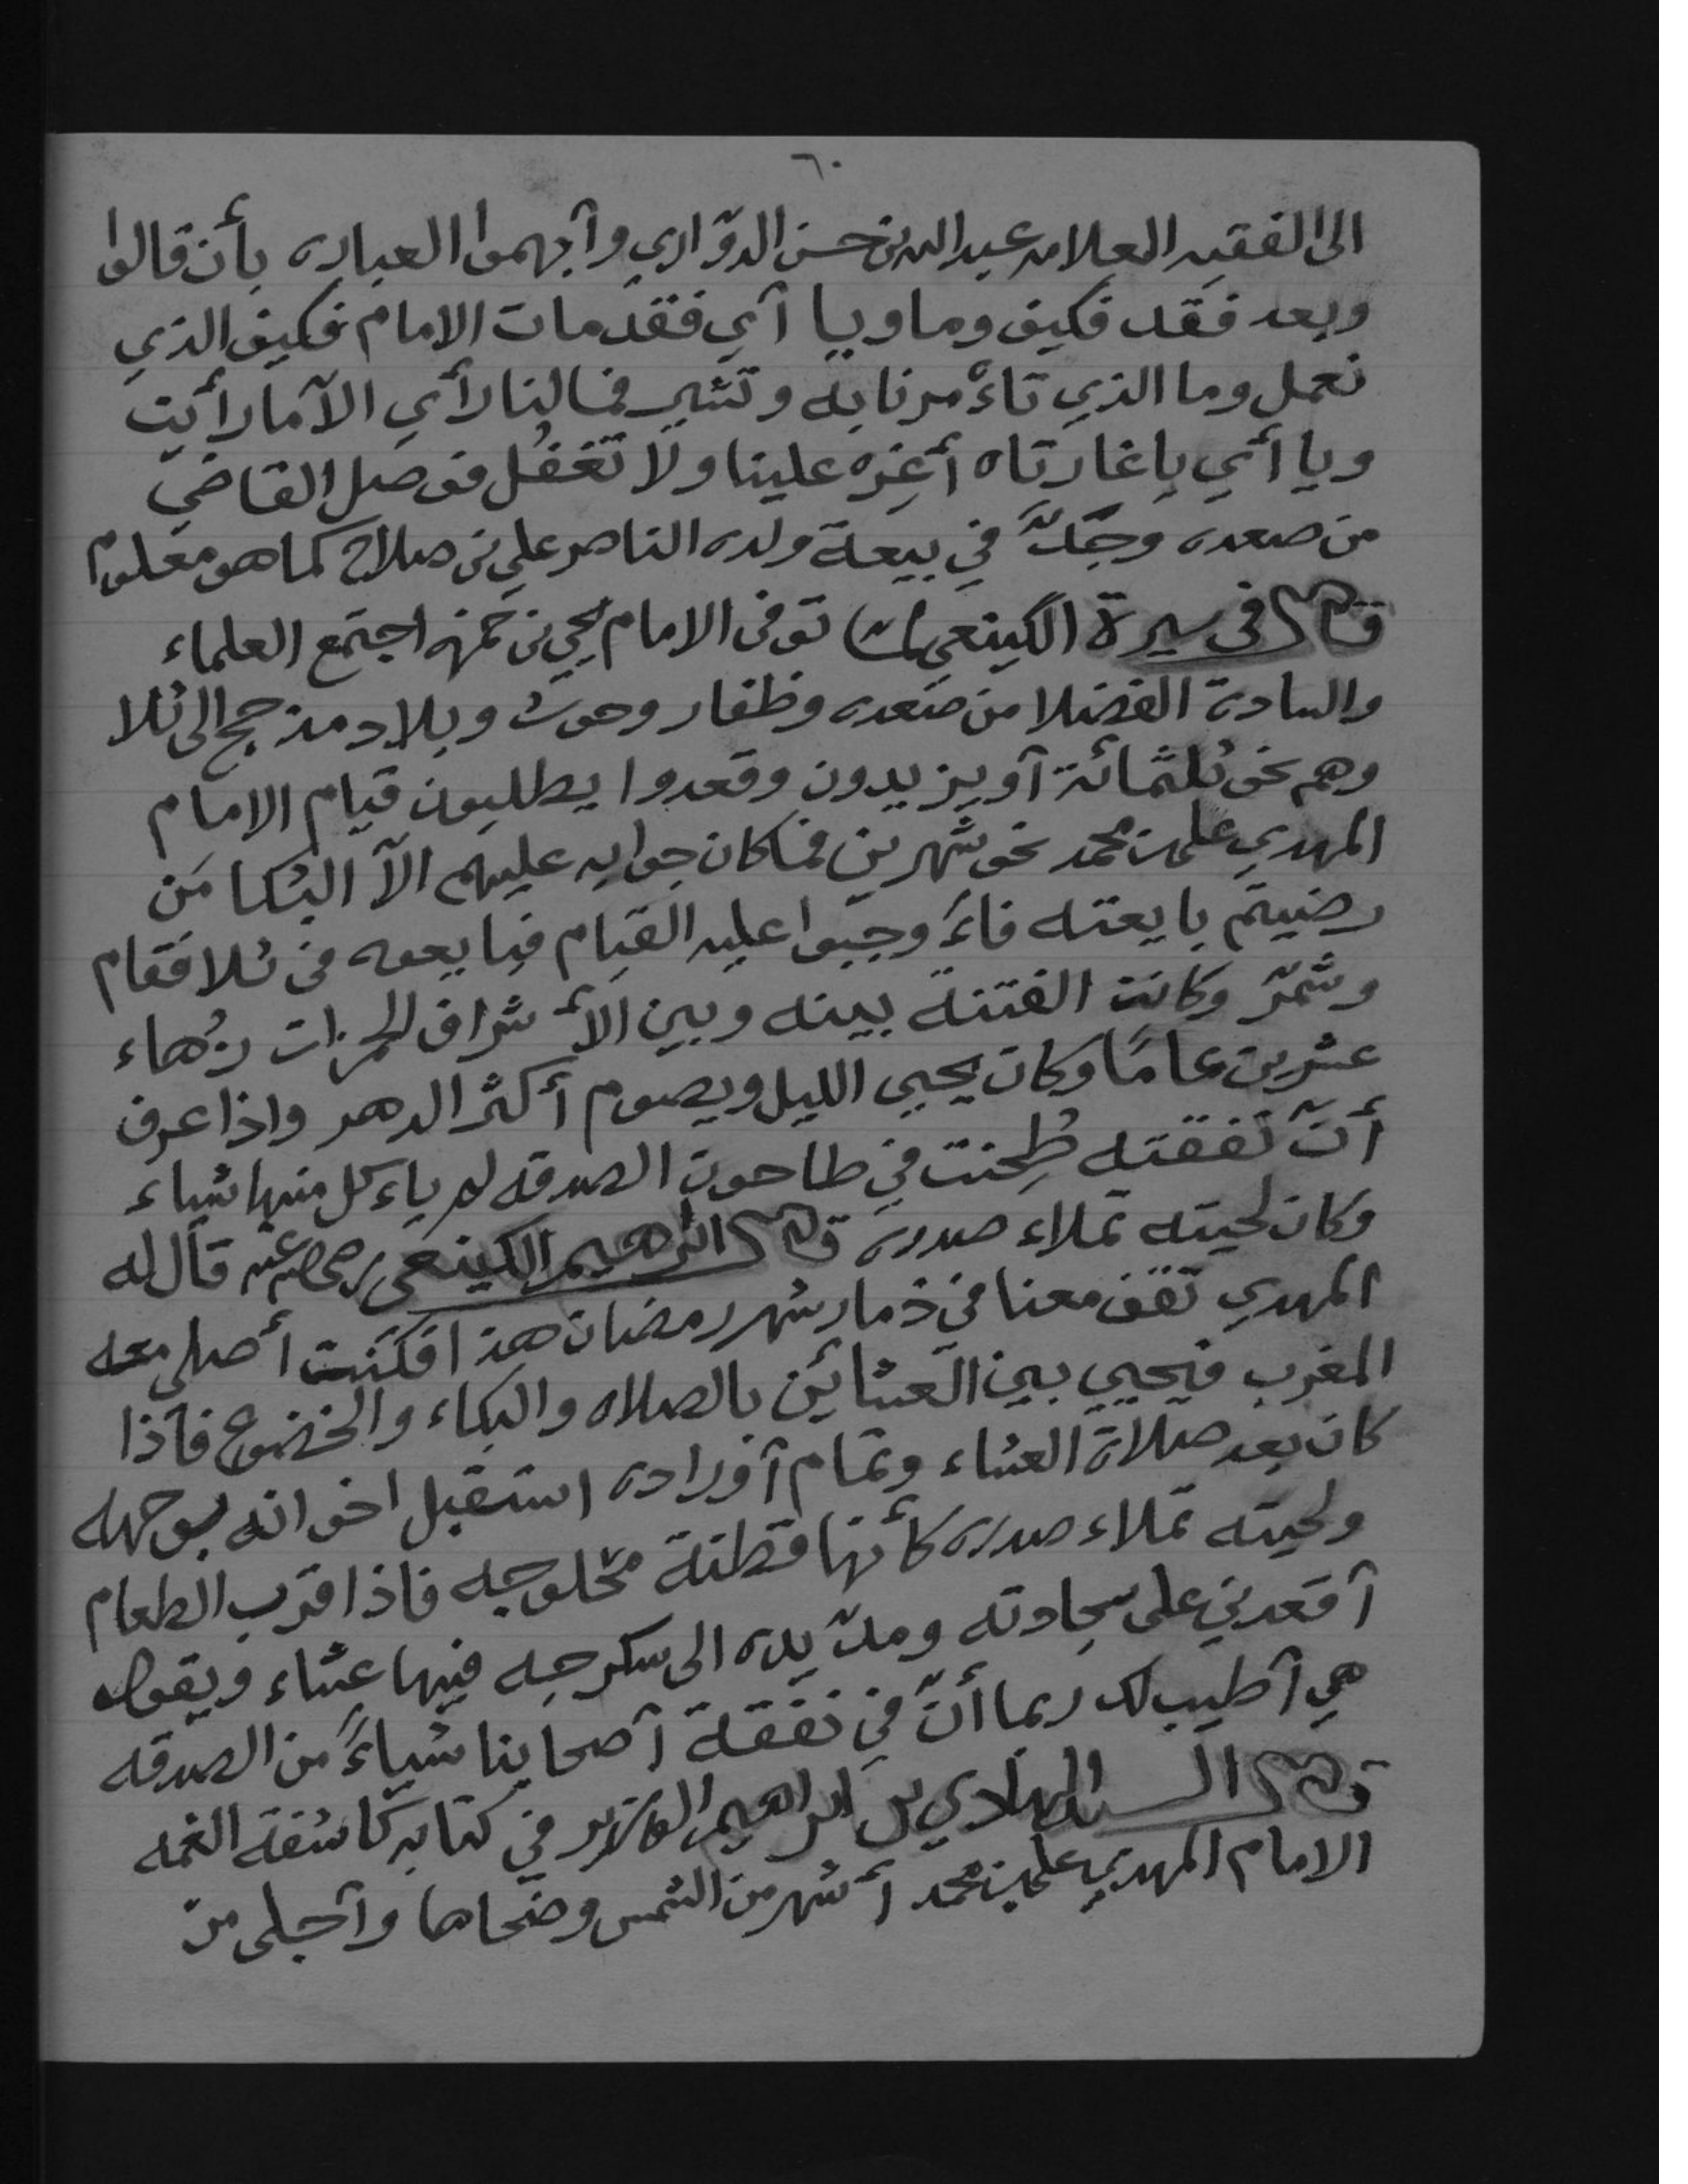 ٦٠
الى الفقيه العلامه عبدالله بن حسن الدوّاري وأبهموا العباره بأن قالوا
وبعد فقد فكيف وما ويا أي فقد مات الامام فكيف الذي
نعمل وما الذي تاءْمرنا به وتشير فمالنا رأي الآ ما رأيت
ويا أي يا غارتاه أغِره علينا ولا تغفُل فوصل القاضي
من صعده وجَدَّ في بيعة ولده الناصر علي بن صلاح كما هو معلوم
قال في سيرة الكينعي لما توفى الامام يحيى بن حمزه اجتمع العلماء
والسادة الفضلا من صعده وظفار وحوث وبلاد مذحج الى ثلا
وهم نحو ثلثمائة أو يزيدون وقعدوا يطلبون قيام الامام
المهدي علي بن محمد نحو شهرين فما كان جوابه عليهم الآ البكا مَن
رضيتم بايعته فاءَ وجبوا عليه القيام فبايعوه في ثلا فقام
وشمّر وكانت الفتنة بينه وبين الأشراف الحمزات زُهاء
عشرين عامًا وكان يحيي الليل ويصوم أكثر الدهر واذا عرف
أنّ نفقته طُحِنت في طاحون الصدقه لم ياءكل منها شياء
وكان لحيته تملاء صدره قال ابراهيم الكينعي رضي الله عنه قال له
المهدي تقف معنا في ذمار شهر رمضان هذا فكنت أصلى معه
المغرب فيحيي بين العشائين بالصلاه والبكاء والخضوع فاذا
كان بعد صلاة العشاء وتمام أوراده استقبل اخوانه بوجهه
ولحيته تملاء صدره كأنها قطنة محلوجه فاذا قرب الطعام
أقعدني على سجادته ومدّ يده الى سكرجه فيها عشاء ويقول
هي أطيب لك ربما أنّ في نفقة أصحابنا شياءً من الصدقه
قال السيد الهادي بن ابراهيم الوزير في كتابه كاشفة الغمه
الامام المهدي علي بن محمد أشهر من الشمس وضحاها وأجلى من